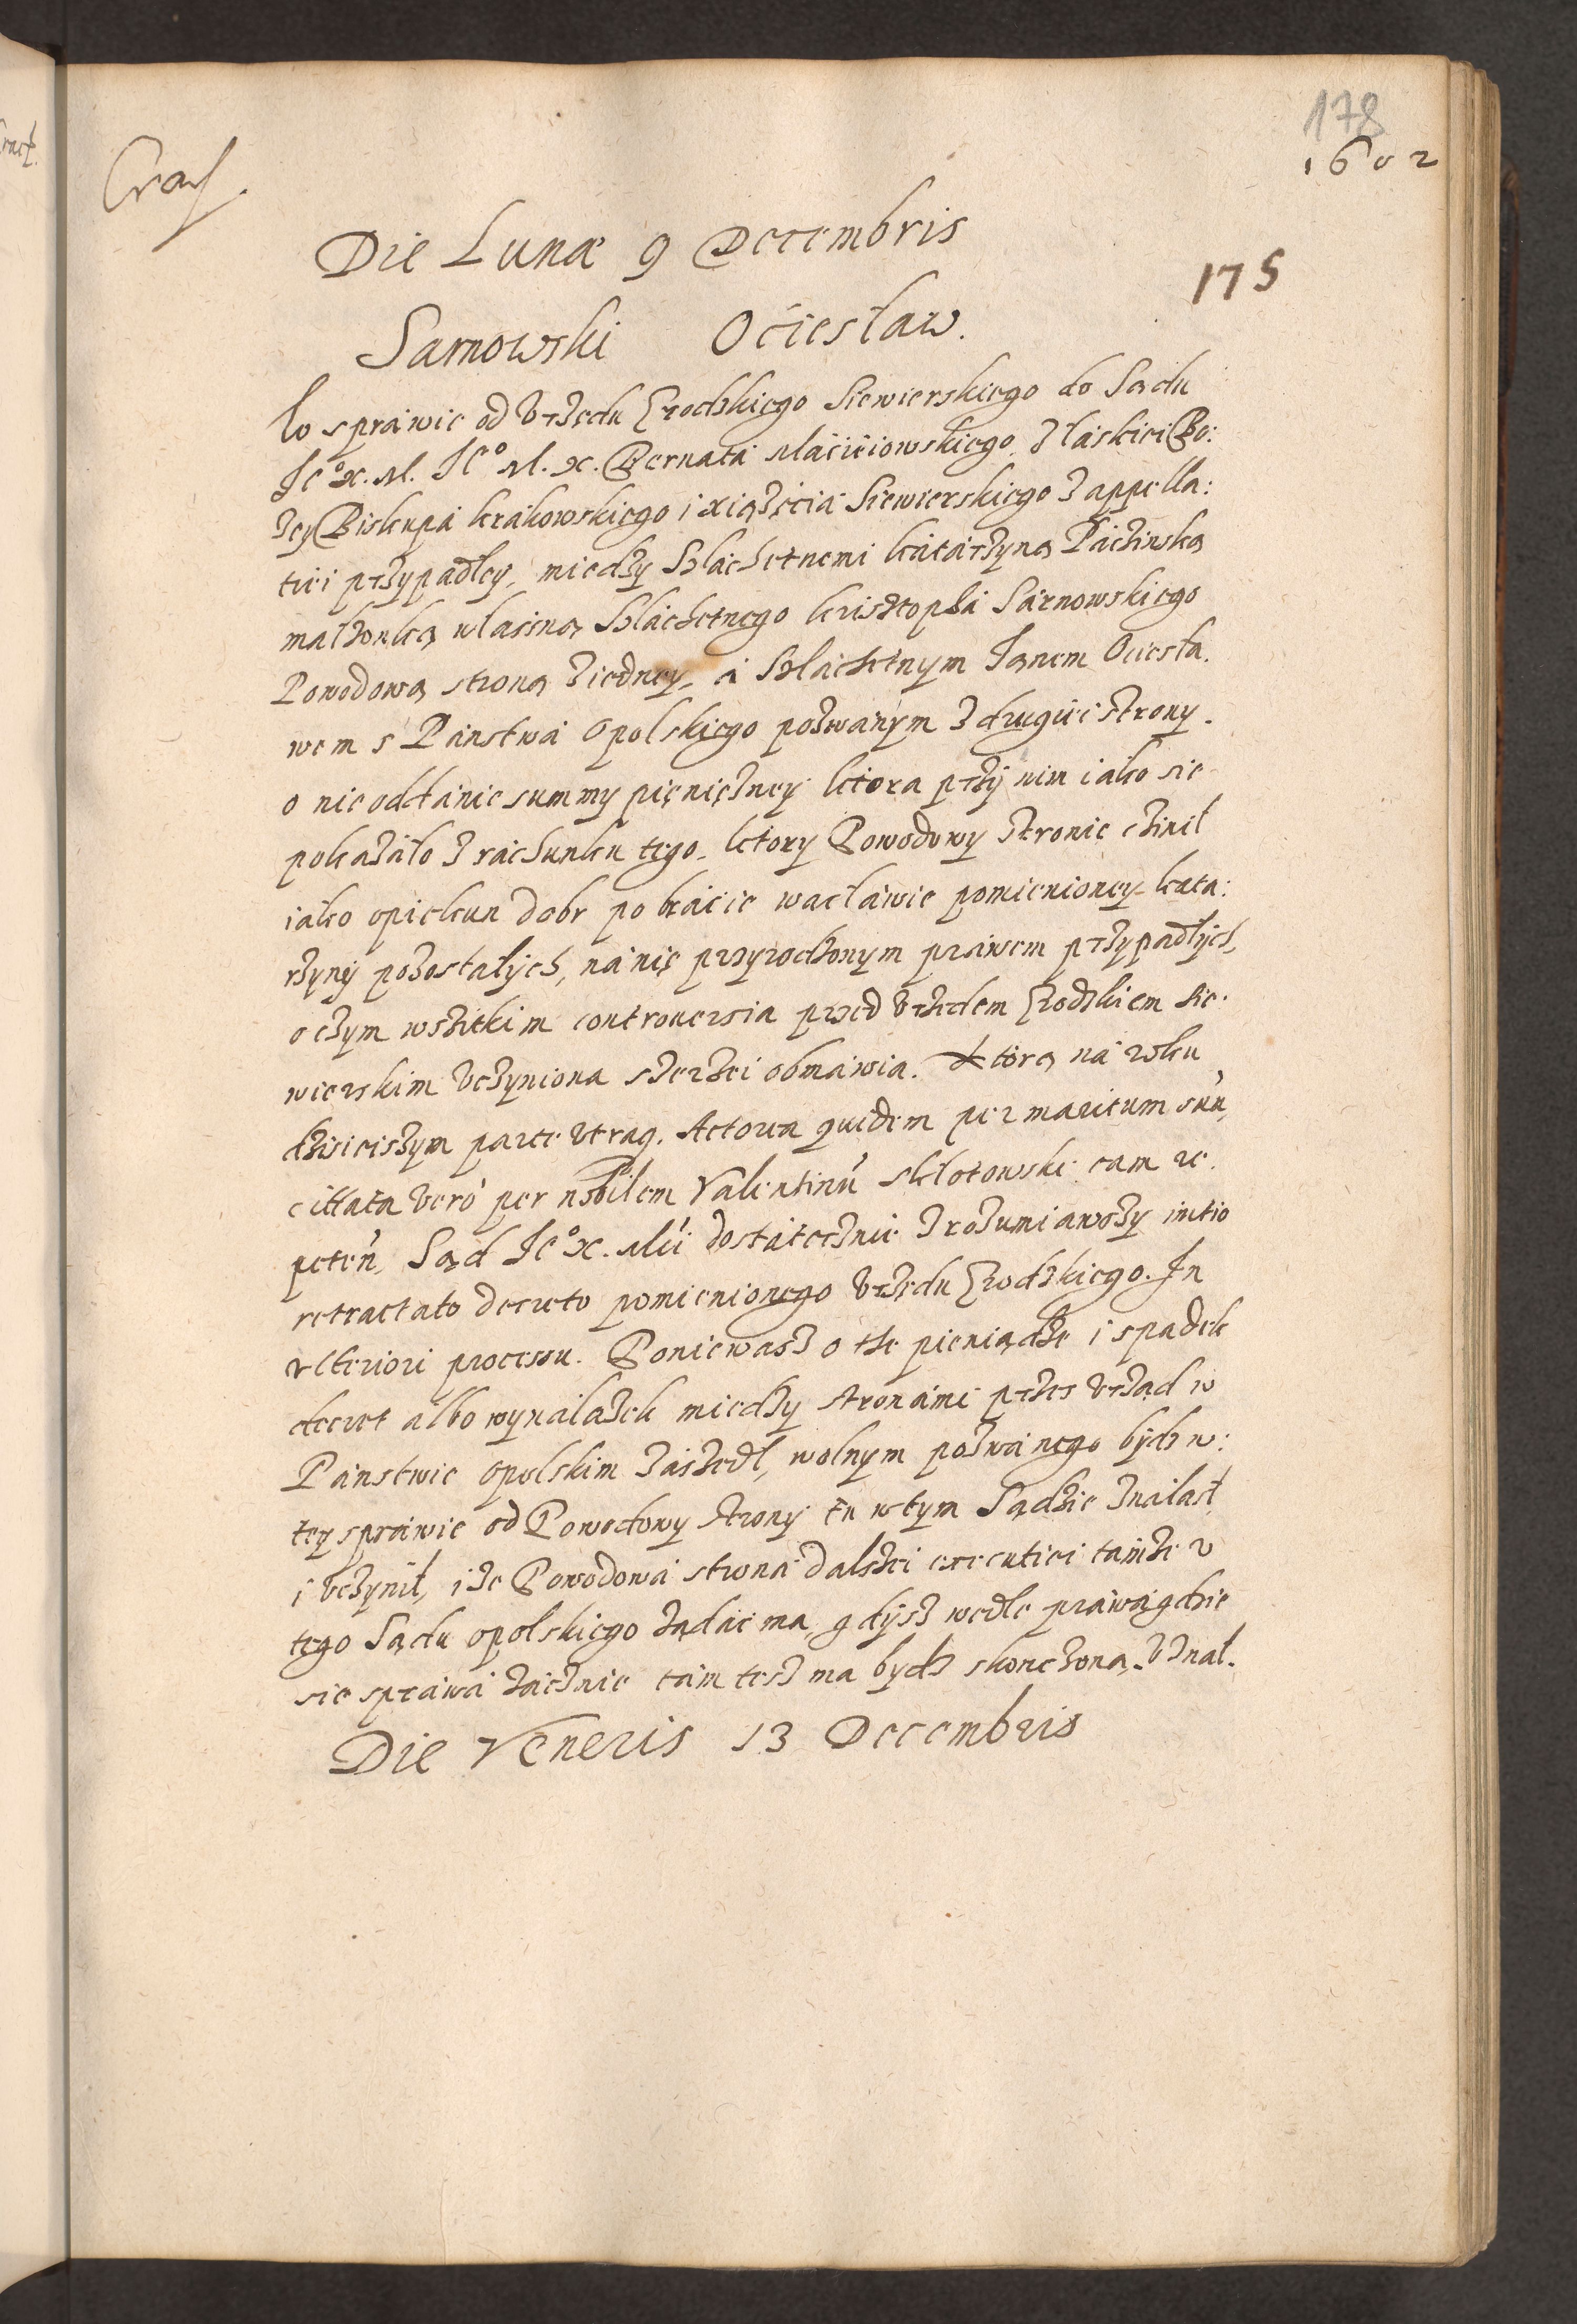 178
1602
Die Lunæ 9 Decembris
175
Sarnowski Ociesław.
W sprawie od Vrzędu Grodzkiego Siewierskiego do Sądu
Ic° X. M. Ic° M. X. Bernata Maciciowskiego. z łaski Bo:
zey Biskupa krakowskiego i xiążęcia Siewierskiego z appella:
tiei przypadłey, miedzy Szlachetnemi katarzyną Paczinską
małżonką własną Szlachetnego krisztopha Sarnowskiego
Powodową stroną ziedney, a Szlachetnym Janem Ociesła.
wem s Panstwa Opolskiego pozwanym z drugiei strony.
o nie oddanie summy pięnięzney ktora przÿ nim iako sie
pokazało z rachunku tego. ktory Powodowy stronie czinił
iako opiekun dobr po bracie wacławie pomienioney kata:
rzynÿ pozostałÿch, na nię przyrodzonym prawem przypadłÿch,
o czym wszitkim controuersia przed Vrzedem Grodzkiem Sie.
wierskim vczyniona szerzei obmawia. Ktorą na roku
dzisieiszym parte vtraq. Actorea quidem per maritum suũ,
cittata vero per nobilem Valentinũ Sklotowski eam re.
petẽn, Sąd Ic° X. Mći dostatecznie zrozumiawszy initio
retractato decreto pomienionego Vrzędu Grodzkiego. In
vlteriori processu. Poniewasz o the pieniądze i spadek
decret albo wynalazek miedzy stronami przes vrząd w
Panstwie opolskim zaszedł, wolnym pozwanego bÿdz w:
tey sprawie od Powodowy strony tu w tym Sądzie znalasł
i vczynił, i ze Powodowa strona dalszei executiei tamże v
tego Sądu opolskiego żądac ma, gdÿsz wedle prawa gdzie
sie sprawa zacznie tam tesz ma bydz skonczona. Vznał.
Die Veneris 13 Decembris